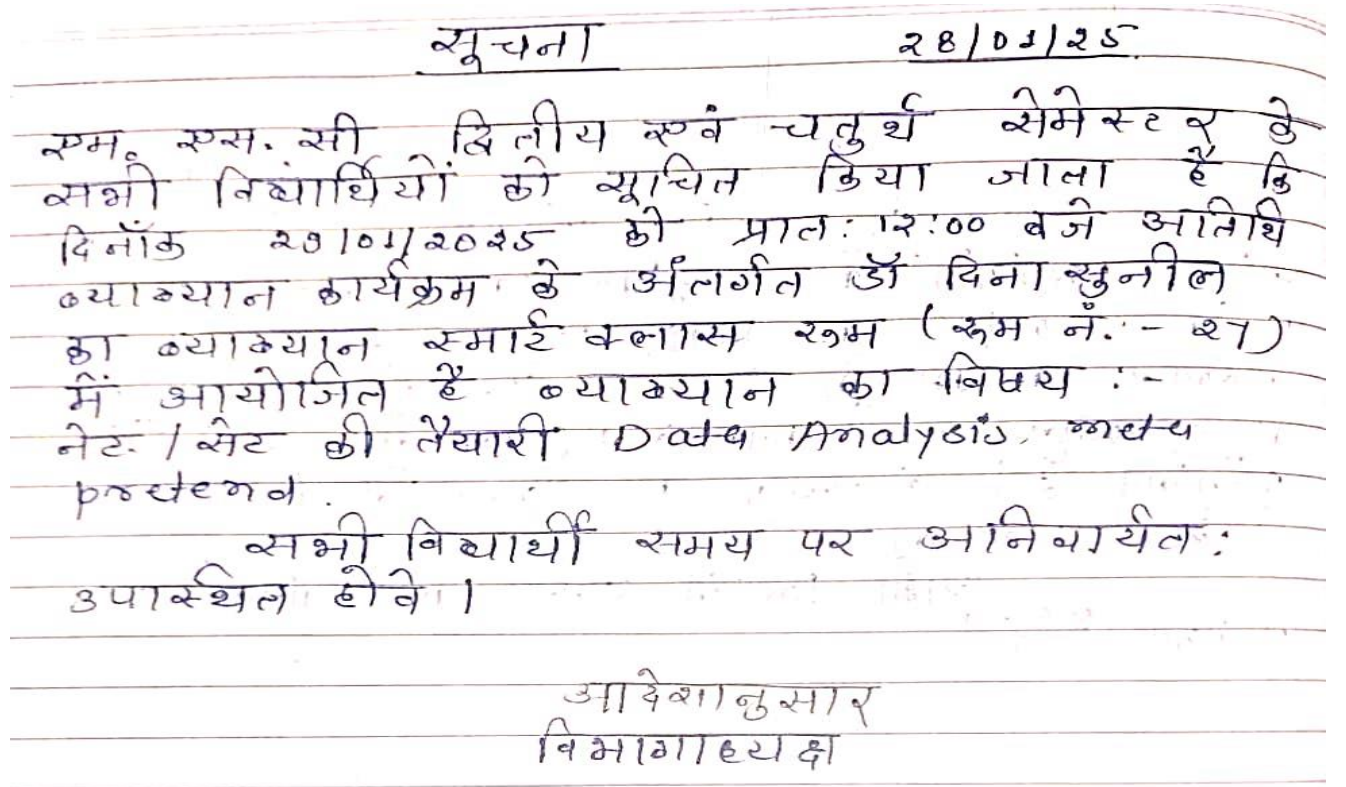 सूचना 28/01/25
एम. एस. सी द्वितीय एवं चतुर्थ सेमेस्टर के
सभी विद्यार्थियों को सूचित किया जाता है कि
दिनाँक 29/01/2025 को प्रात: 12:00 बजे अतिथि
व्याख्यान कार्यक्रम के अंतर्गत डॉ दिना सुनील
का व्याख्यान स्मार्ट क्लास रूम (रूम नं. - 27)
में आयोजित है व्याख्यान का विषय :-
नेट / सेट की तैयारी Data Analysis meta
pretend.
सभी विद्यार्थी समय पर अनिवार्यत:
उपस्थित होवे।
आदेशानुसार
विभागाध्यक्ष